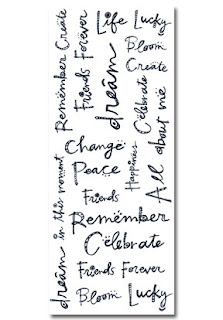 Life Lucky
Bloom
Create
dream
Friends Forever
Remember Create
Celebrate
All about me
Happiness
Change
Peace
Friends
dream in this moment
Remember
Celebrate
Friends Forever
Bloom Lucky